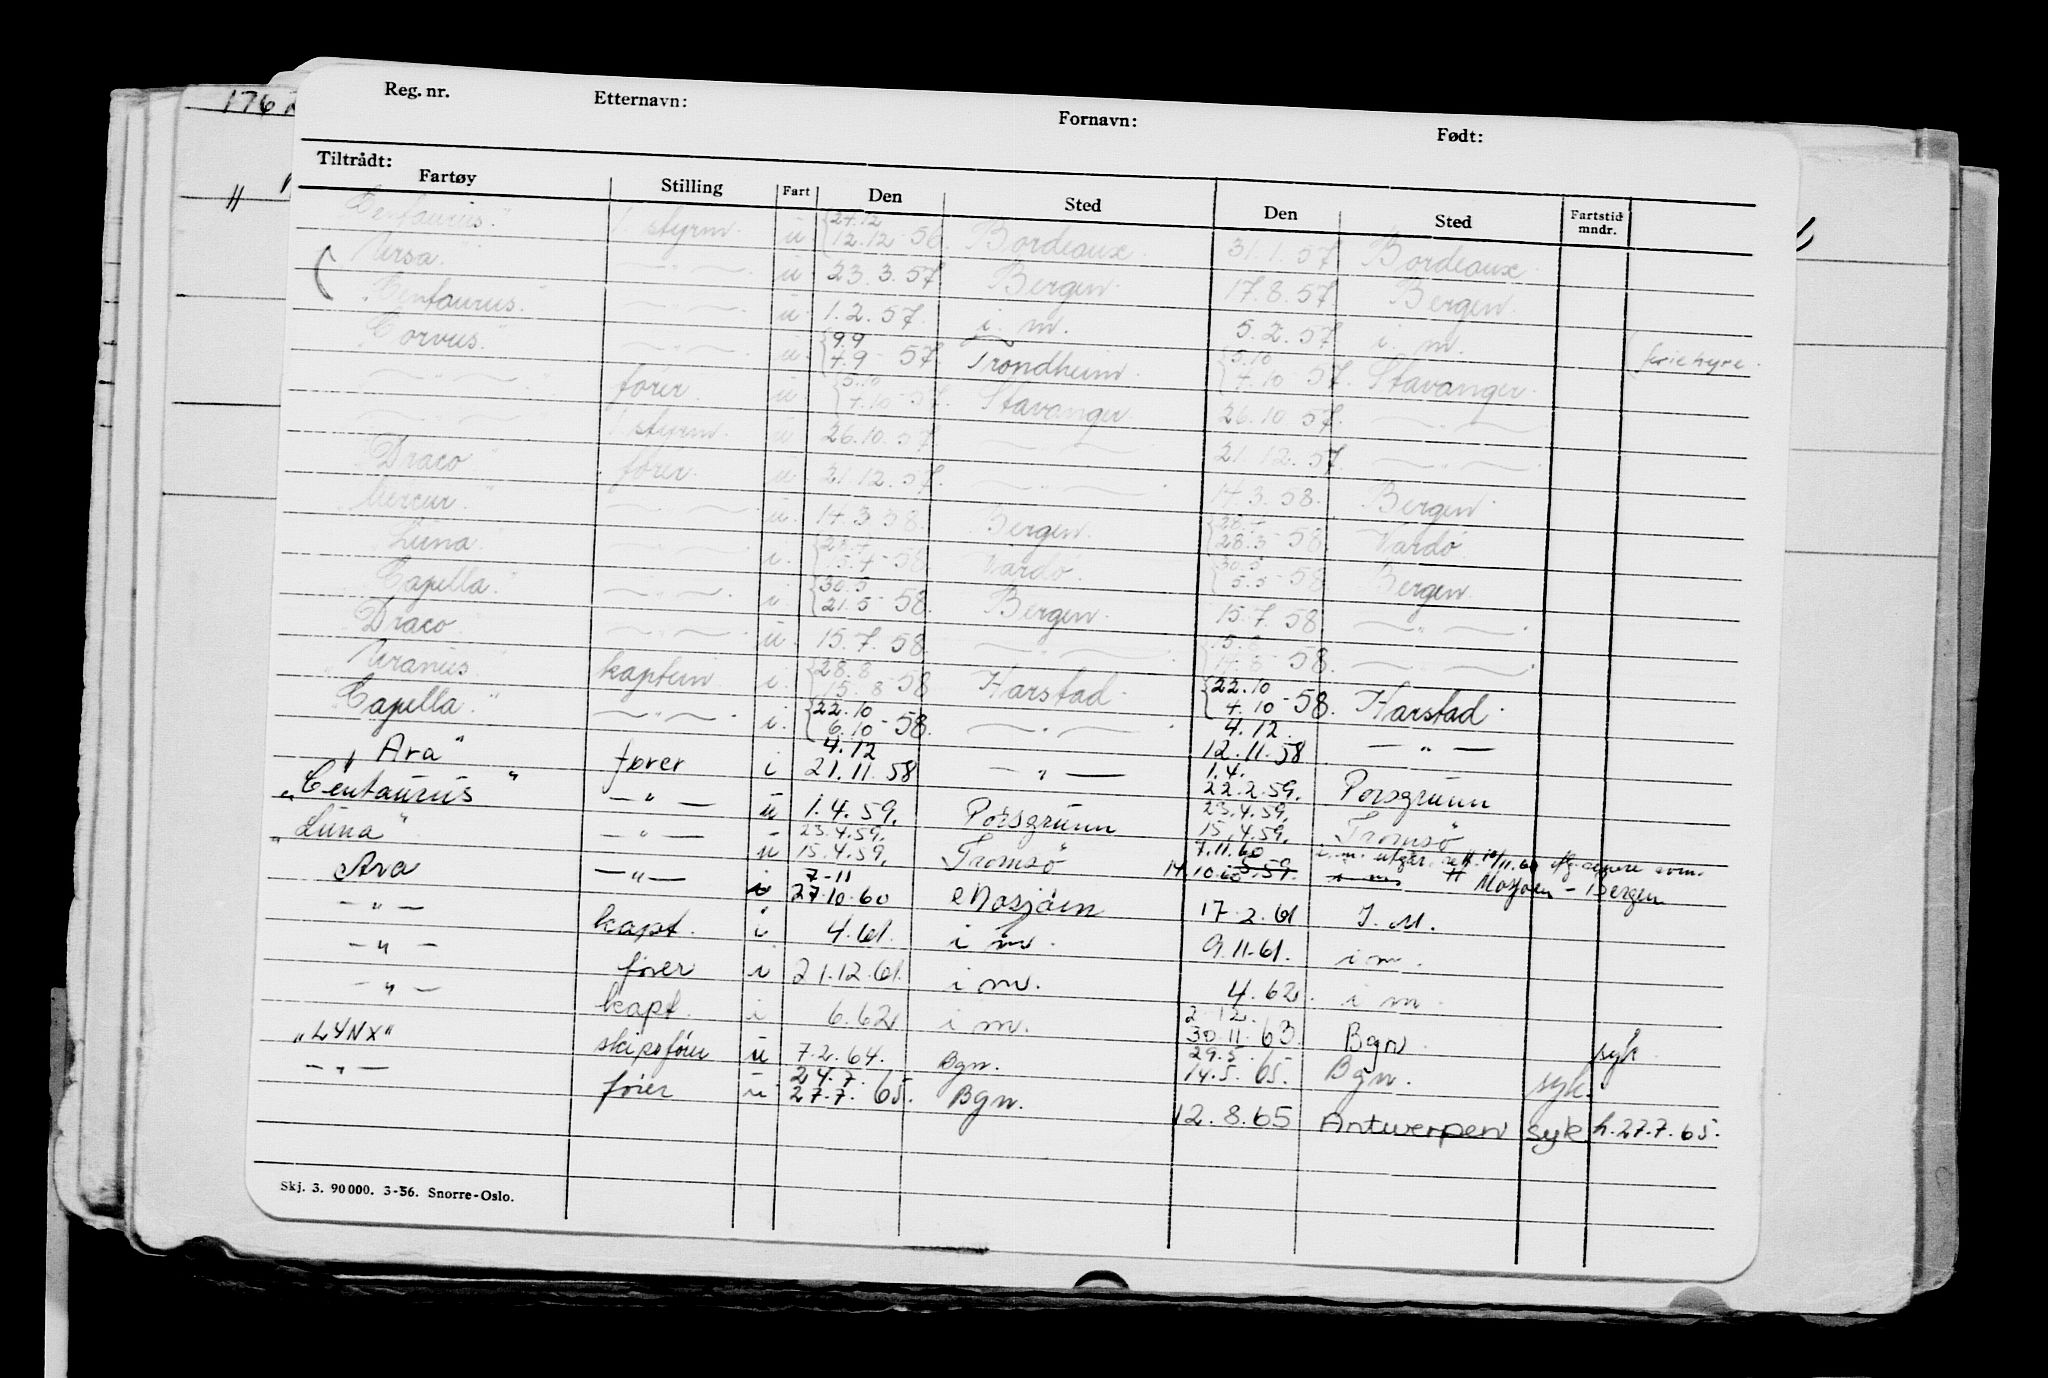 176
"
Reg. nr. Etternavn: Fornavn: Født:
Tiltrådt:
Fartøy Stilling Fart Den Sted Den Sted Fartstid mndr.
"Centaurus" 1 styrm. u {24.12 12.12 56. Bordeaux 31.1.57 Bordeaux
"Ursa" — " — u 23.3.57 Bergen 17.8.57 Bergen
"Centaurus" — " — u 1.2.57. i. m. 5.2.57 i. m. (feriehyre.
"Corvus" — " — u {9.9 4.9 - 57. Trondheim {5.10 4.10 - 57. Stavanger
— " — fører u {5.10 7.10 - 57. Stavanger 26.10 57. — " —
— " — 1 styrm. u 26.10.57 — " — 21.12.57. — " —
"Draco" fører. u 21.12.57. — " — 14.3.58. Bergen
"Mercur" — " — u. 14.3.58. Bergen {28.4 28.3 - 58. Vardö
"Luna" — " — i. {28.4 5.4 - 58 Vardö {30.5 5.5 - 58 Bergen
"Capella" — " — i {30.5 21.5 - 58. Bergen 15.7.58. — " —
"Draco" — " — u 15.7.58 — " — 58. — " —
"Uranus" kaptein i. {28.8 15.8 58 Harstad {22.10 4.10 - 58. Harstad
"Capella" — " — i. {22.10 6.10 - 58. — " — 4.12. 12.11.58 — " —
"Ara" fører i 4.12 21.11.58 — " — 1.4. 22.2.59. Porsgrunn
"Centaurus" — " — u 1.4.59. Porsgrunn 23.4.59. 15.4.59. Tromsö
"Luna" — " — u 23.4.59. 15.4.59. Tromsö 7.11.60 14.10.60 5.59. i. m. utgår. 10/11.60 som. Mosjøen - Bergen
Ara — " — i 7-11 27.10.60 Mosjöen 17.2.61 I. M.
— " — kapt. i 4.61. i m. 9.11.61. i m.
— " — fører i 21.12.61. i m. 4.62. i m.
— " — kapt. i 6.62 i m. 2.12. 30.11.63. Bgn. syk.
"LYNX" skipsfører u 7.2.64. Bgn. 29.5. 14.5.65. Bgn. syk.
— " — fører u 24.7. 27.7. 65. Bgn. 12.8.65 Antwerpen syk h. 27.7.65.
Skj. 3. 90000. 3-56. Snorre-Oslo.